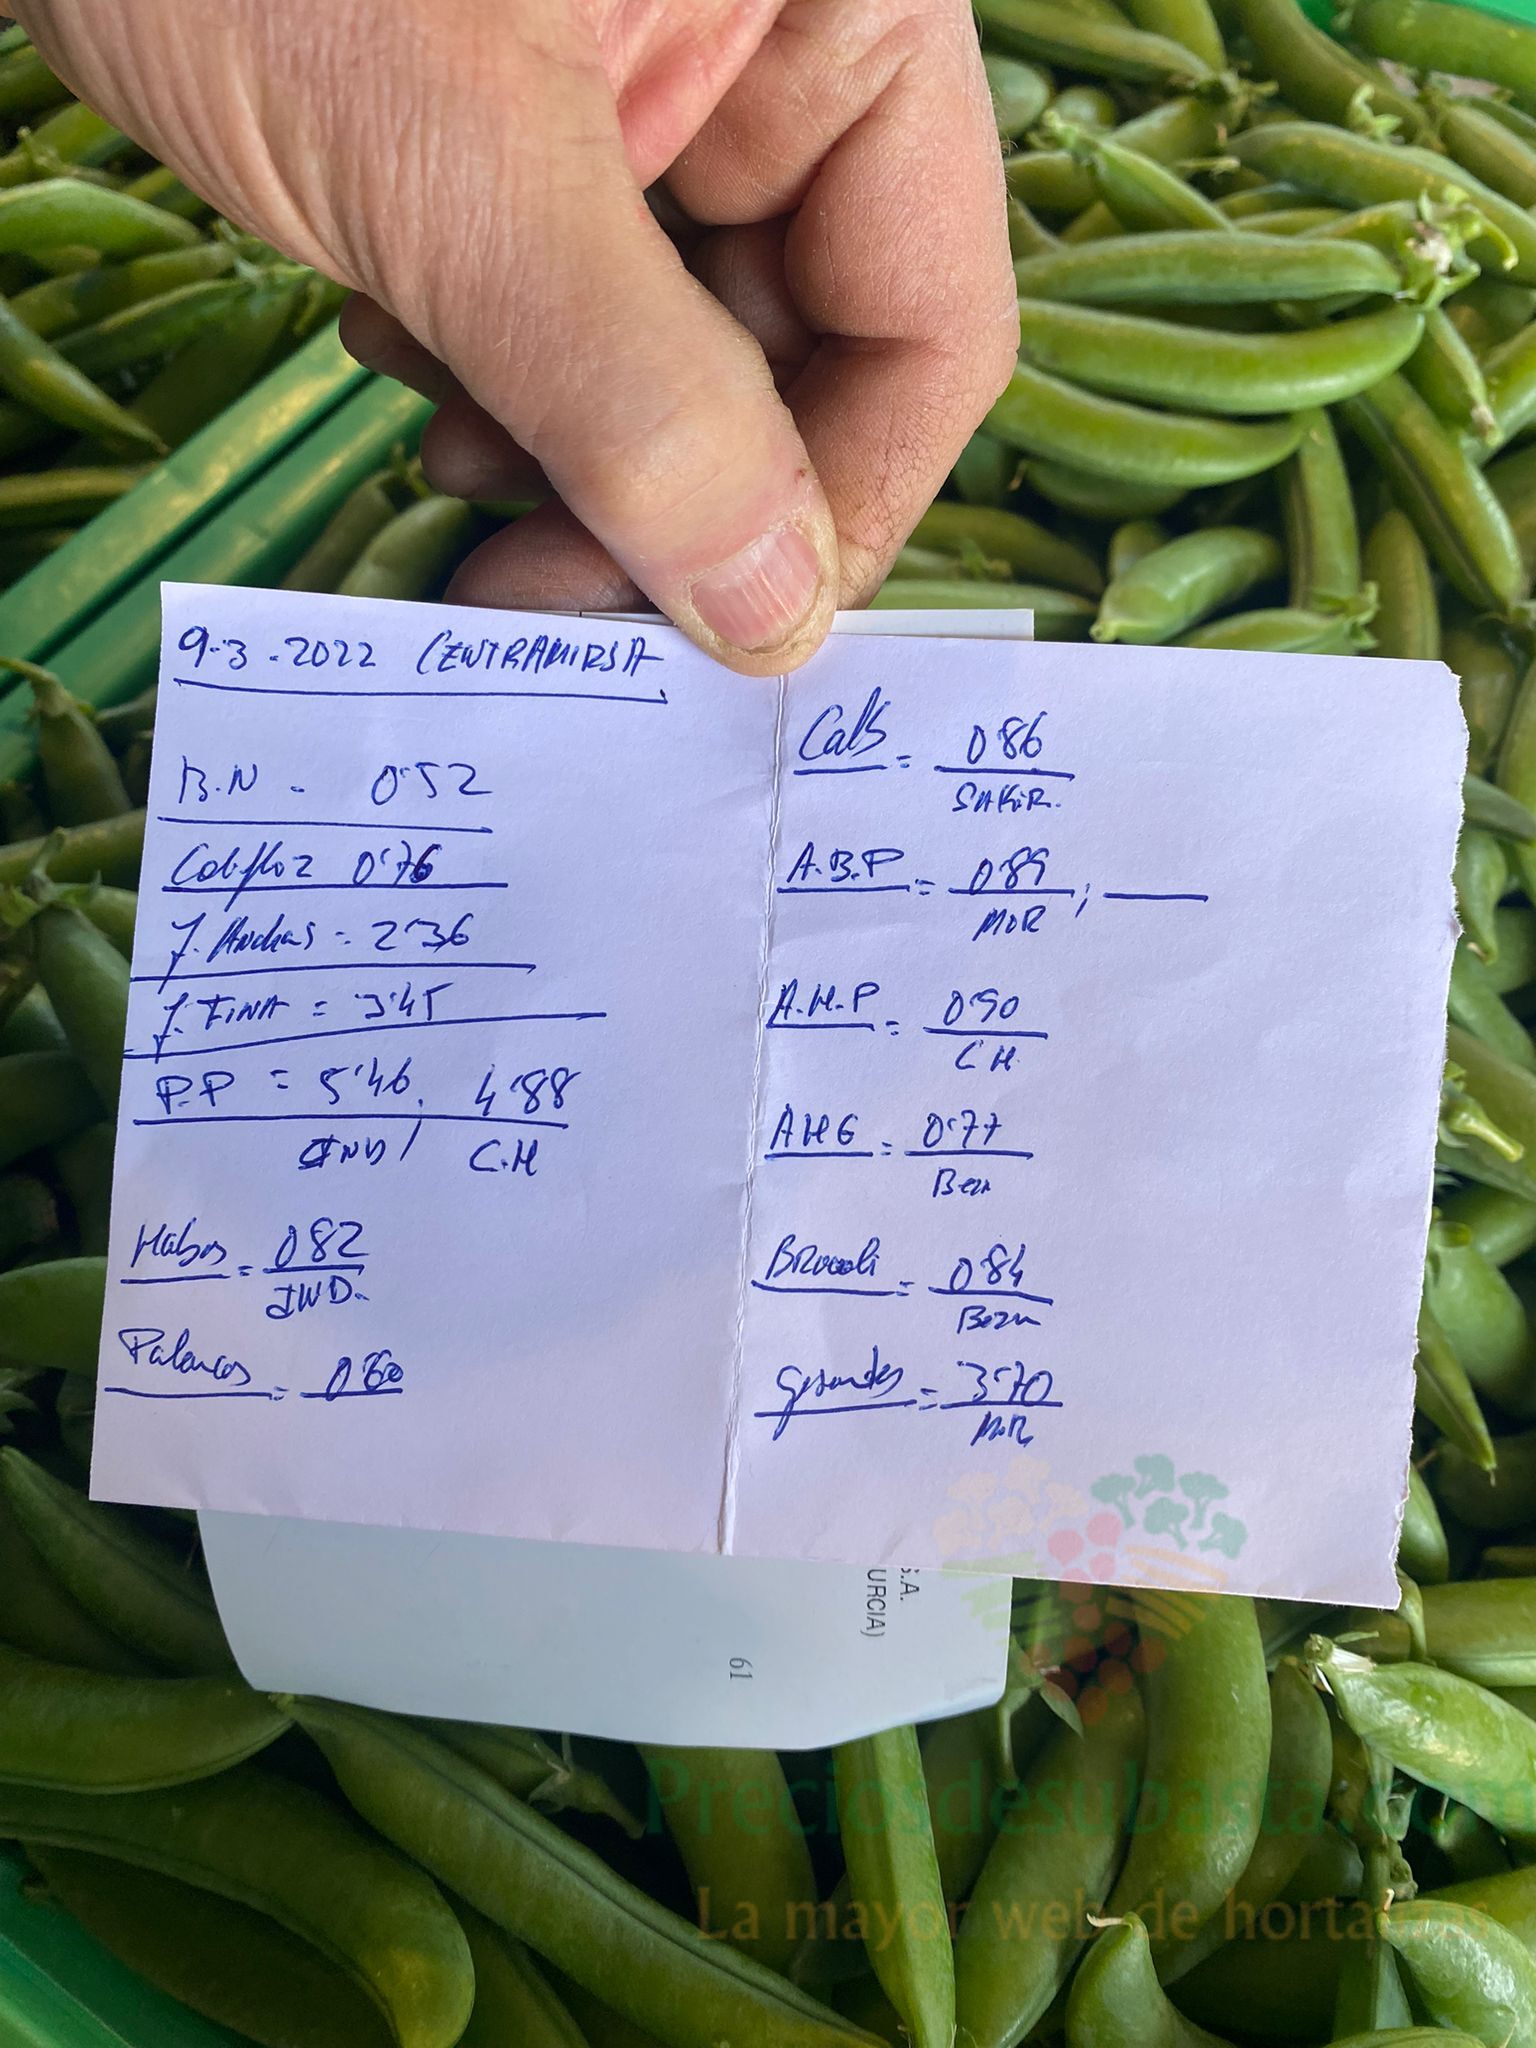 9-3-2022 CENTRAMIRSA
B.N - 0'52
Coliflor 0'76
J. Anchas = 2'36
J. FINA = 3'45
P.P = 5'46, 4'88
IND / C.H
Habas = 0'82
IND.
= 0'60
Calb = 0'86
SAKIR.
A.B.P = 0'89 ;
MOR
A.H.P = 0'90
C H.
A H G = 0'77
Bezn
Brocoli = 0'84
Bezn
Gisantes = 3'70
MOR
S.A.
URCIA)
61
Preciosdesubasta.com
La mayor web de hortalizas